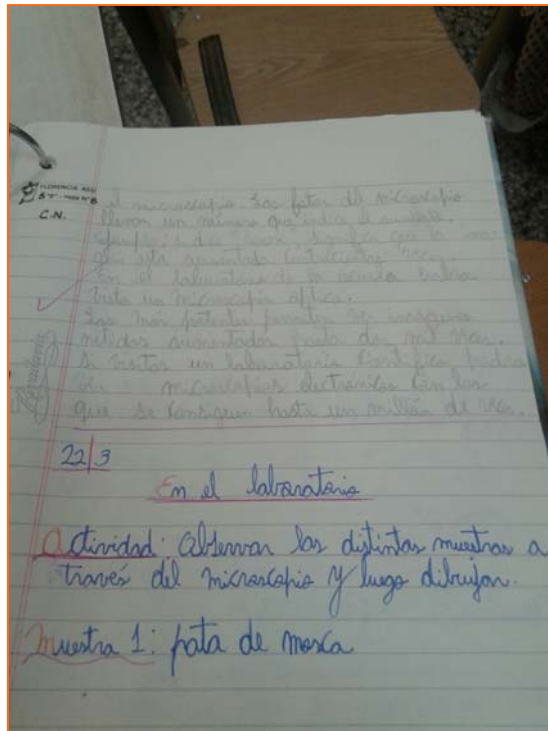 FLORENCIA
C.N.
el microscopio. Las fotos del microscopio
llevan un número que indica el aumento.
ejemplo: si dice significa que la ima-
gen está aumentada cuatrocientas veces.
En el laboratorio de la escuela habrás
visto un microscopio óptico.
Los más potentes permiten ver imágenes
nítidas aumentadas hasta dos mil veces.
Si visitas un laboratorio científico podrás
ver microscopios electrónicos con los
que se consiguen hasta un millón de veces.
22/3
En el laboratorio
Actividad: Observar las distintas muestras a
través del microscopio y luego dibujar.
Muestra 1: pata de mosca